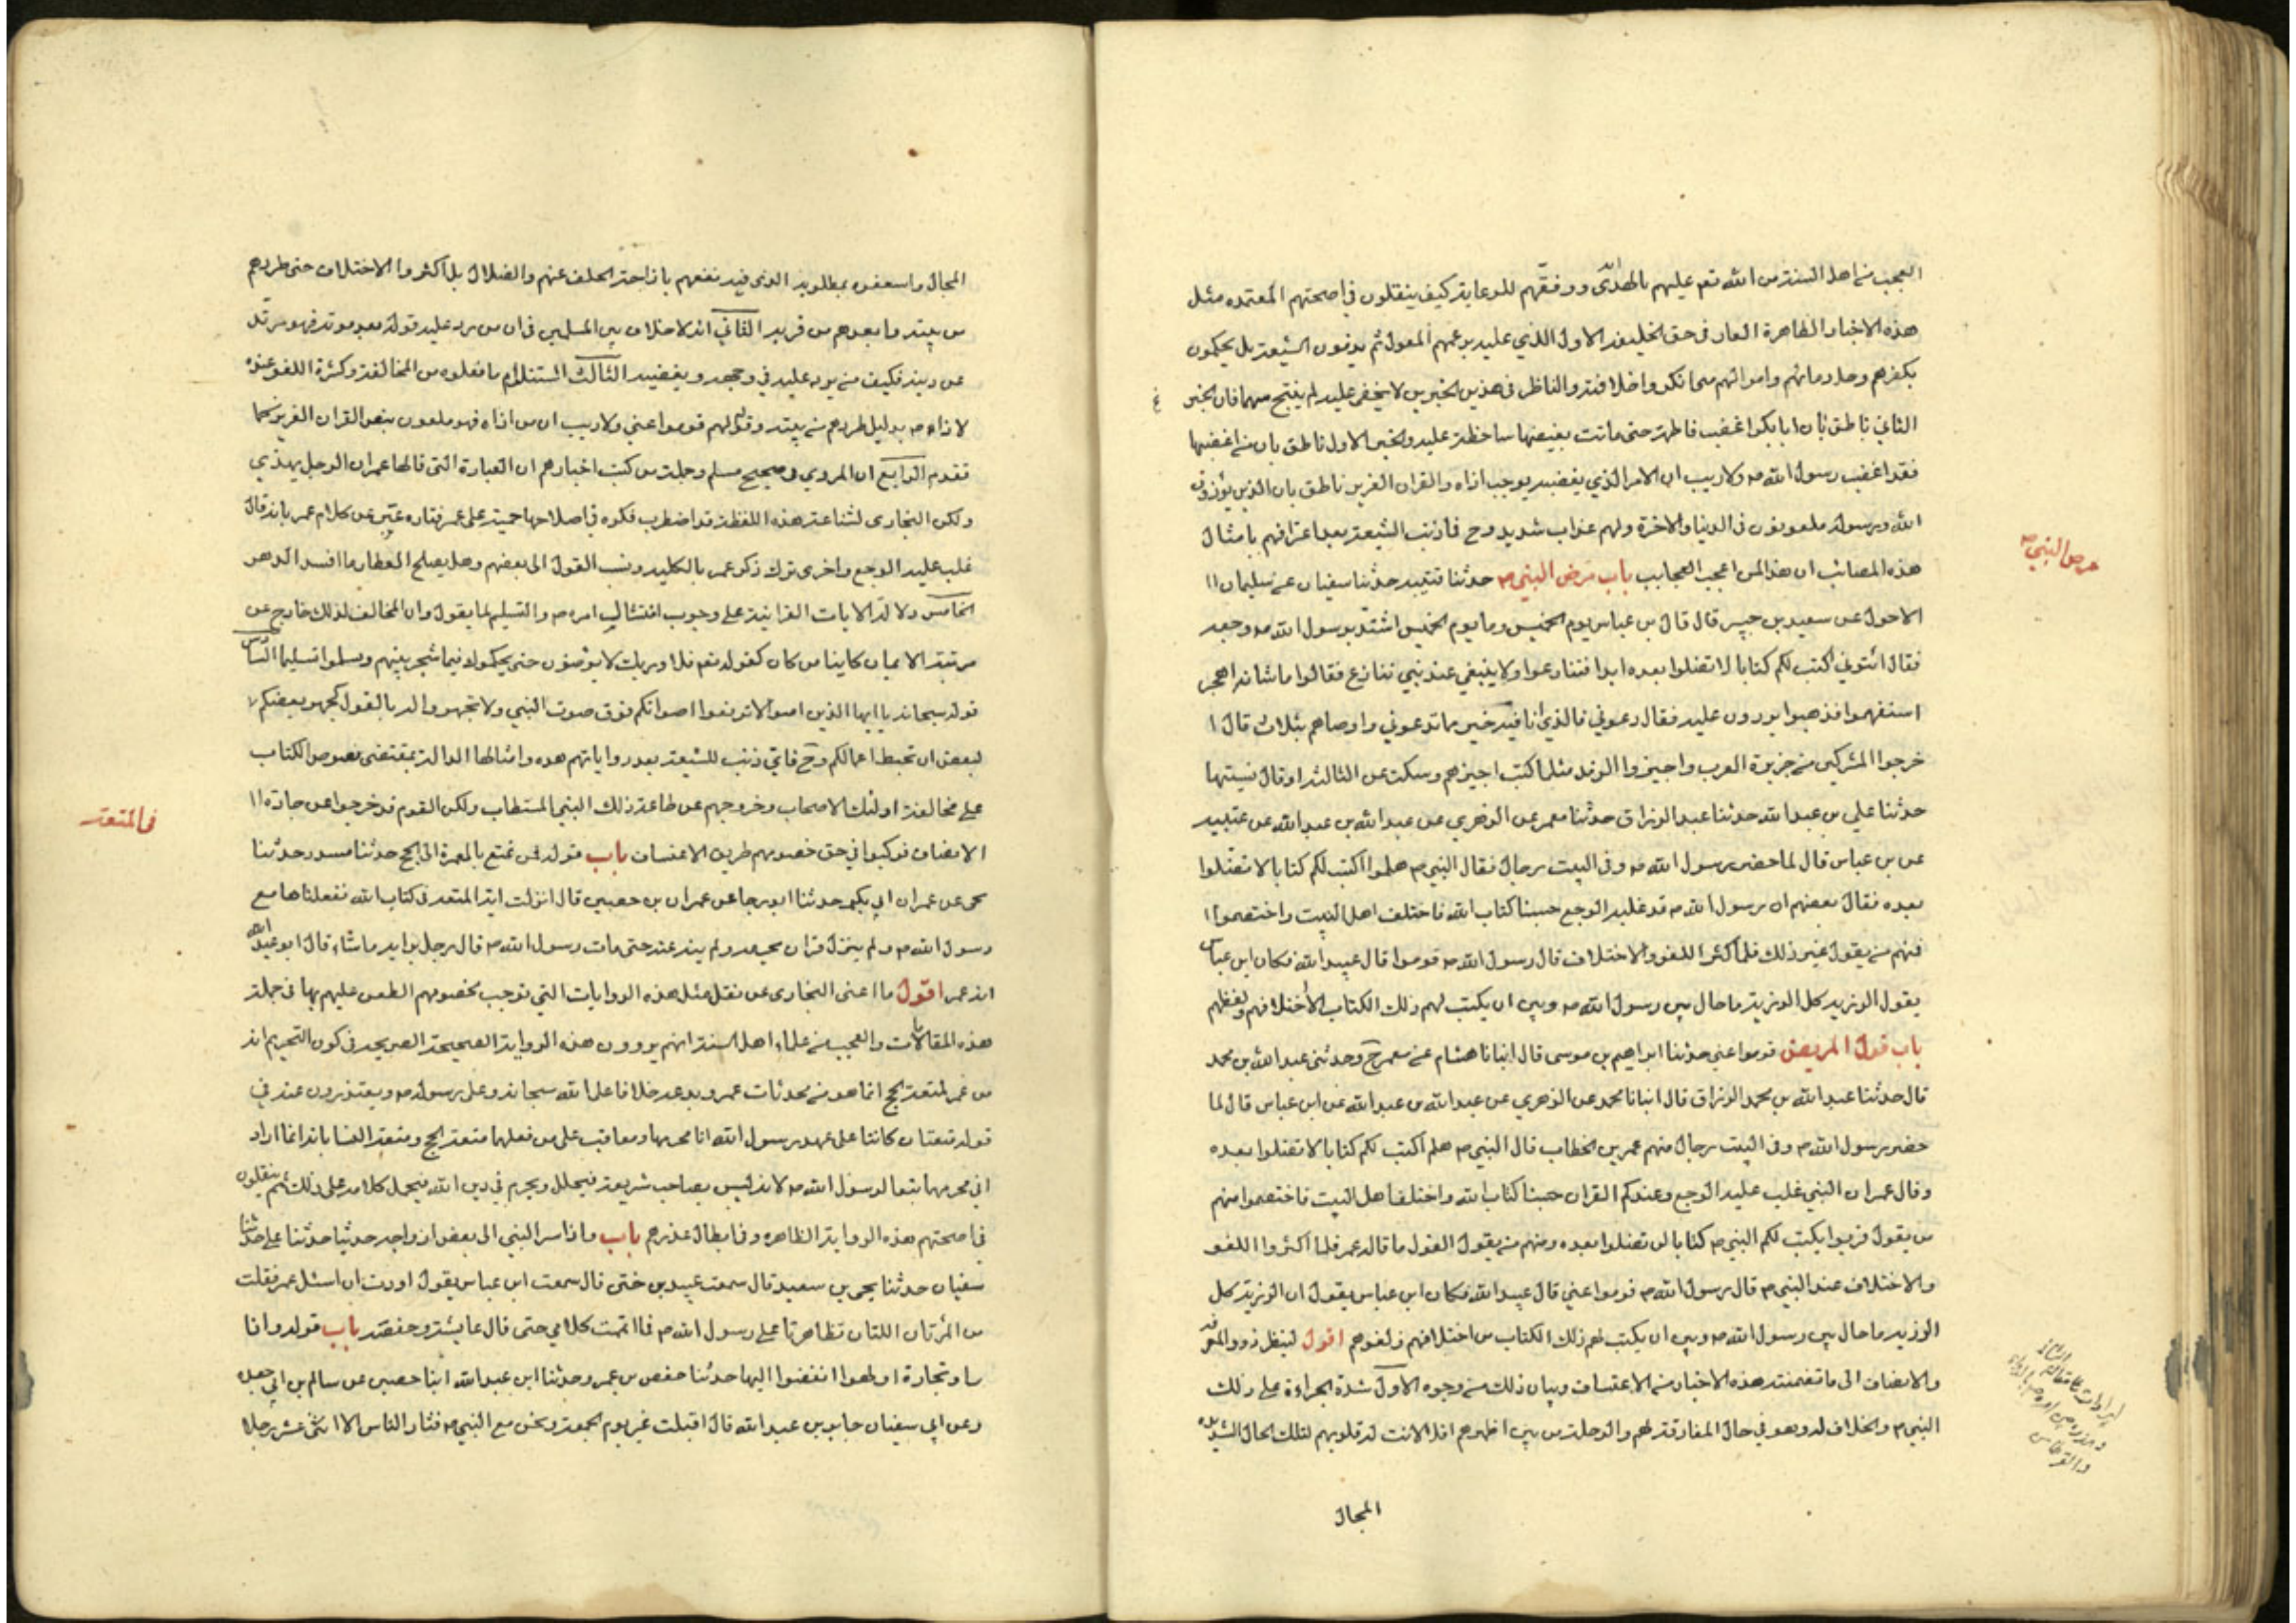 العجب من اهل السنة من الله تعم عليهم بالهدى ووفقهم للوعاية كيف ينقلون في اصحتهم المعتمده مثل
هذه الاخبار الظاهرة العار في حق الخليفة الاول الذي عليه بوعهم المعول ثم يرمون الشيعة بل يحكمون
بكفرهم وحل دمائهم واموالهم والناظر في هذين الخبرين لا يخفى عليه فان الخبر
الثاني ناطق بان ابا بكر اغضب فاطمة حتى ماتت بغيضها ساخطة عليه والخبر الاول ناطق بان من اغضبها
فقد اغضب رسول الله ص ولا ريب ان الامر الذي يغضبه يوجب اذاه والقران العزيز ناطق بان الذين يؤذون
الله ورسوله ملعونون في الدنيا والاخرة ولهم عذاب شديد وح فاذنب الشيعة بعد اعترافهم بامثال
هذه المصائب ان هذا لمن اعجب العجايب باب مرض النبي ص حدثنا قتيبه حدثنا سفيان عن سليمان ا
مرض النبي ص
الاحول عن سعيد بن جبير قال قال بن عباس يوم الخميس وما يوم الخميس اشتد برسول الله ص وجعه
فقال ائتوني اكتب لكم كتابا لا تضلوا بعده ابدا فتنازعوا ولا ينبغي عند نبي تنازع فقالوا ما شانه اهجر
استفهموا فذهبوا يردون عليه فقال دعوني فالذي انا فيه خير مما تدعوني واوصاهم بثلاث قال ا
خرجوا المشركين من جزيرة العرب واجيزوا الوفد مثلما كنت اجيزهم وسكت عن الثالثة او قال نسيتها
حدثنا علي بن عبد الله حدثنا عبد الرزاق حدثنا معمر عن الزهري عن عبد الله بن عبد الله عن عتبيه
عن بن عباس قال لما حضر رسول الله ص وفي البيت رجال فقال النبي ص هلموا اكتب لكم كتابا لا تضلوا
بعده فقال بعضهم ان رسول الله ص قد غلبه الوجع حسبنا كتاب الله فاختلف اهل البيت واختصموا ا
فمنهم من يقول غير ذلك فلما اكثرا اللغو والاختلاف قال رسول الله ص قوموا قال عبيد الله فكان ابن عباس
يقول الرزيه كل الرزية ما حال بين رسول الله ص وبين ان يكتب لهم ذلك الكتاب لاختلافهم ولغطهم
باب قول المريض قوموا عني حدثنا ابراهيم بن موسى قال انبانا هشام عن معمر ح وحدثني عبد الله بن محمد
قال حدثنا عبد الله بن محمد الرزاق قال انبانا محمد عن الزهري عن عبد الله بن عبد الله عن ابن عباس قال لما
حضر رسول الله ص وفي البيت رجال منهم عمر بن الخطاب قال النبي ص هلم اكتب لكم كتابا لا تضلوا بعده
وقال عمر ان النبي غلب عليه الوجع وعندكم القران حسبنا كتاب الله واختلف اهل البيت فاختصموا منهم
من يقول قربوا يكتب لكم النبي ص كتابا لن تضلوا بعده ومنهم من يقول القول ما قاله عمر فلما اكثروا اللغو
والاختلاف عند النبي ص قال رسول الله ص قوموا عني قال عبيد الله فكان ابن عباس يقول ان الرزية كل
الرزيه ما حال بين رسول الله ص وبين ان يكتب لهم ذلك الكتاب من اختلافهم ولغوهم اقول لينظر ذووا المعرفه
والانصاف الى ما تضمنته هذه الاخبار من الاعتساف وبيان ذلك من وجوه الاول شدة الجراءة على ذلك
النبي ص والخلاف له وهو في حال المفارقة لهم والرحلة من بين اظهرهم افلا لانت له قلوبهم لتلك الحال الشديده
المجال
المجال واسعفوه بمطلوبه الذي فيه نفعهم بازاحة الخلف عنهم والضلال بل اكثروا الاختلاف حتى طردهم
من بيته وابعدهم من قربه الثاني انه لا خلاف بين المسلمين في ان من يرد عليه قوله بعد موته فهو مرتد
عن دينه فكيف من يرد عليه في وجهه ويغضبه الثالث استلزام ما فعلوه من المخالفة وكثرة اللغو عنده
لاذاه ص بدليل طردهم من بيته وقوله لهم قوموا عني ولا ريب ان من اذاه فهو ملعون بنص القران العزيز كما
تقدم الرابع ان المروي في صحيح مسلم وجلة من كتب اخبارهم ان العبارة التي قالها عمر ان الرجل يهذي
ولكن البخاري لشناعة هذه اللفظة قد اضطرب فكره في اصلاحها حمية على عمر فتاره عبر عن كلام عمر بانه قال
غلب عليه الوجع واخرى ترك ذكر عمر بالكليه ونسب القول الى بعضهم وهل يصلح العطار ما افسد الدهر
الخامس دلالة الايات القرانية على وجوب امتثال امره ص والتسليم لما يقول وان المخالف لذلك خارج عن
مرتبة الايمان كاينا من كان كقوله تعم فلا وربك لا يؤمنون حتى يحكموك فيما شجر بينهم ويسلموا تسليما السادس
قوله سبحانه يا ايها الذين امنوا لا ترفعوا اصواتكم فوق صوت النبي ولا تجهروا له بالقول كجهر بعضكم
لبعض ان تحبط اعمالكم وح فاي ذنب للشيعة بعد رواياتهم هذه وامثالها الدالة بمقتضى نصوص الكتاب
على مخالفة اولئك الاصحاب وخروجهم عن طاعة ذلك النبي المستطاب ولكن القوم قد خرجوا عن جادة ا
في المتعة
الانصاف فركبوا في حق خصومهم طريق الاعتساف باب قوله فمن تمتع بالعمرة الى الحج حدثنا مسدد حدثنا
يحيى عن عمران ابي بكر حدثنا ابو رجا عن عمران بن حصين قال انزلت اية المتعة في كتاب الله ففعلناها مع
رسول الله ص ولم ينزل قران يحرمه ولم ينه عنه حتى مات رسول الله ص قال رجل برايه ما شاء قال ابو عبد الله
انه عمر اقول ما اغنى البخاري عن نقل مثل هذه الروايات التي توجب لخصومهم الطعن عليهم بها في جملة
هذه المقالات والعجب من علماء اهل السنة انهم يروون هذه الرواية الصحيحة الصريحة في كون التحريم انه
من عمر لمتعة الحج انما هو من محدثات عمر وبدعه خلافا على الله سبحانه وعلى رسوله ص ويعتذرون عنه في
قوله متعتان كانتا على عهد رسول الله انا محرمهما ومعاقب على من فعلهما متعة الحج ومتعة النسا بانه انما اراد
اني محرمهما تبعا لرسول الله ص لانه ليس بصاحب شريعة فيحلل ويحرم في دين الله فيحمل كلامه على ذلك ثم ينقلون
في اصحتهم هذه الرواية الظاهره في ابطال عذرهم باب واذ اسر النبي الى بعض ازواجه حديثا حدثنا علي حدثنا
سفيان حدثنا يحيى بن سعيد قال سمعت عبيد بن ختى قال سمعت ابن عباس يقول اردت ان اسئل عمر فقلت
من المرئتان اللتان تظاهرتا على رسول الله ص فما اتممت كلامي حتى قال عايشة وحفصة باب قوله واذا
راو تجارة او لهوا انفضوا اليها حدثنا حفص بن عمر وحدثنا ابن عبد الله انبا حصين عن سالم بن ابي جعد
وعن ابي سفيان جابر بن عبد الله قال اقبلت عير يوم الجمعة ونحن مع النبي ص فثار الناس الا اثنى عشر رجلا